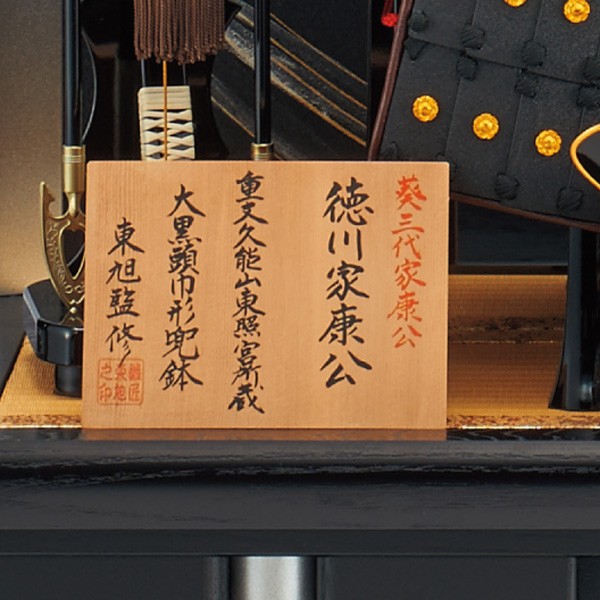 葵三代家康公
徳川家康公
重文久能山東照宮所蔵
大黒頭巾形兜鉢
東旭監修
雛匠東旭之印